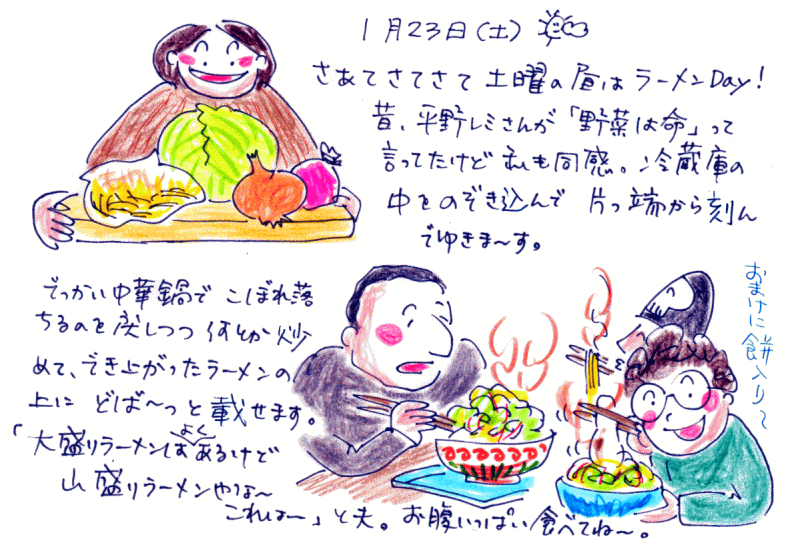 1月23日(土)
さあてさてさて 土曜の昼は ラーメンDay!
昔、平野レミさんが「野菜は命」って
言ってたけど 私も同感。冷蔵庫の
中をのぞき込んで 片っ端から刻ん
でゆきま〜す。
でっかい中華鍋で こぼれ落
ちるのを戻しつつ 何とか炒
めて、でき上がったラーメンの
上に どば〜っと載せます。
「大盛りラーメンはよくあるけど
山盛りラーメンやなー
これはー」と夫。お腹いっぱい食べてね〜。
おまけに餅入り〜